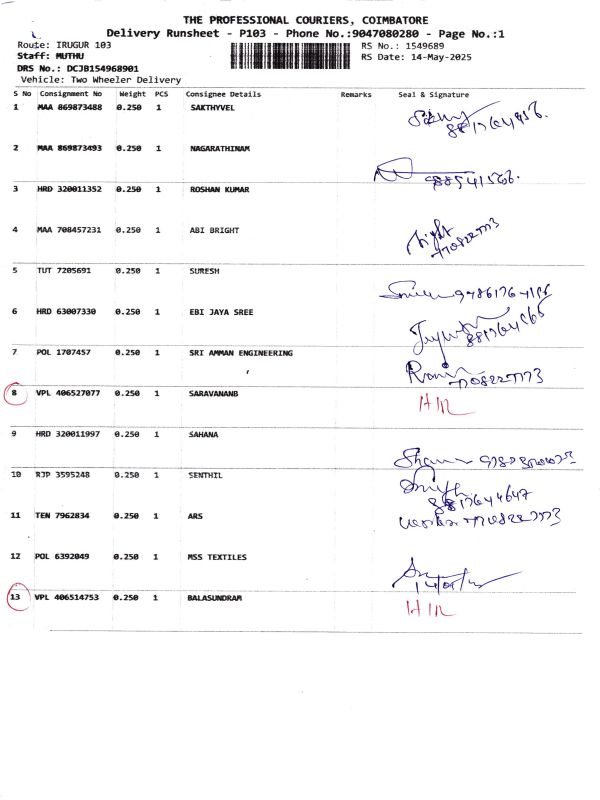 THE PROFESSIONAL COURIERS, COIMBATORE
Delivery Runsheet - P103 - Phone No.:9047080280 - Page No.:1
Route: IRUGUR 103 RS No.: 1549689
Staff: MUTHU RS Date: 14-May-2025
DRS No.: DCJB154968901
Vehicle: Two Wheeler Delivery
S No Consignment No Weight PCS Consignee Details Remarks Seal & Signature
1 MAA 869873488 0.250 1 SAKTHYVEL
2 MAA 869873493 0.250 1 NAGARATHINAM
3 HRD 320011352 0.250 1 ROSHAN KUMAR
4 MAA 708457231 0.250 1 ABI BRIGHT
5 TUT 7205691 0.250 1 SURESH
6 HRD 63007330 0.250 1 EBI JAYA SREE
7 POL 1707457 0.250 1 SRI AMMAN ENGINEERING
8 VPL 406527077 0.250 1 SARAVANANB H/R
9 HRD 320011997 0.250 1 SAHANA
10 RJP 3595248 0.250 1 SENTHIL
11 TEN 7962834 0.250 1 ARS
12 POL 6392049 0.250 1 MSS TEXTILES
13 VPL 406514753 0.250 1 BALASUNDRAM H/R